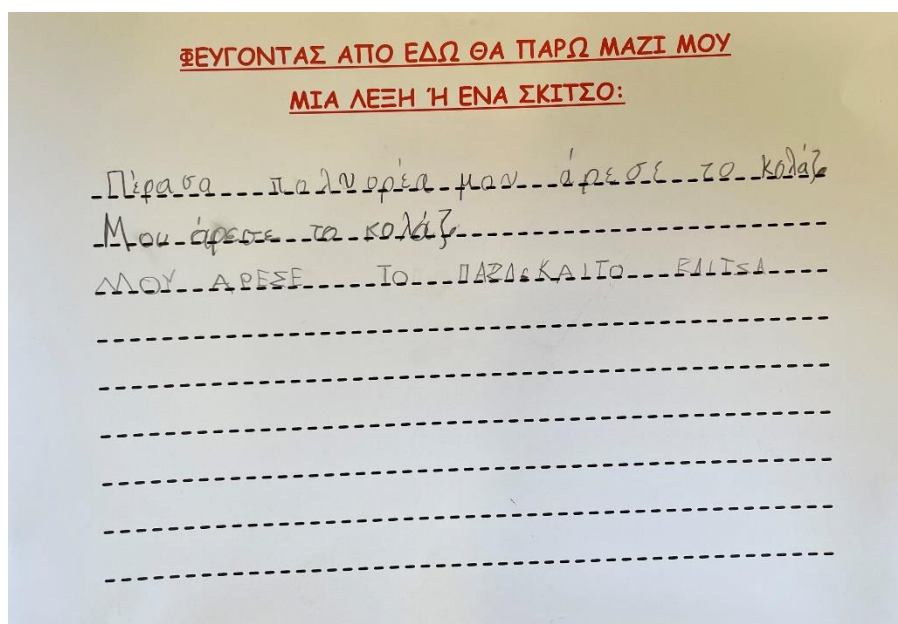 ΦΕΥΓΟΝΤΑΣ ΑΠΟ ΕΔΩ ΘΑ ΠΑΡΩ ΜΑΖΙ ΜΟΥ
ΜΙΑ ΛΕΞΗ Ή ΕΝΑ ΣΚΙΤΣΟ:
Πέρασα πολυορέα μου άρεσε το κολάζ
Μου άρεσε το κολάζ
ΜΟΥ ΑΡΕΣΕ ΤΟ ΚΑΙ ΤΟ